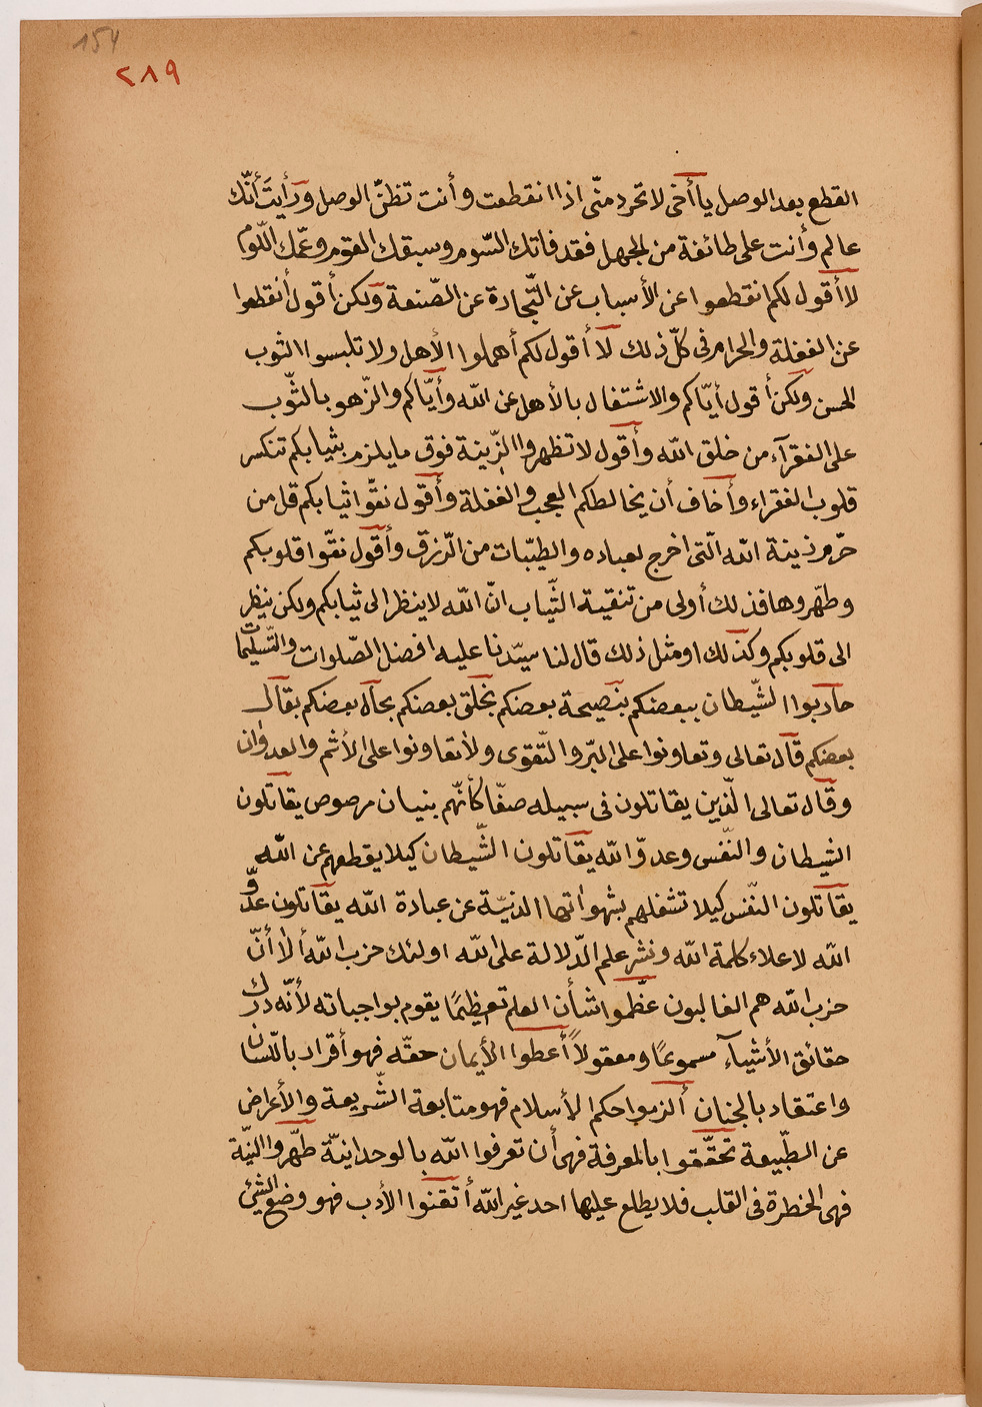 154
٢٨٩
القطع بعد الوصل يا أخى لا تحرد منّى اذا انقطعت وأنت تظنّ الوصل ورأيت أنّك
عالم وأنت على طائفة من الجهل فقد فاتك السّوم وسبقك القوم وعمّك اللّوم
لا أقول لكم انقطعوا عن الأسباب عن التّجارة عن الصّنعة ولكن أقول أنقطعوا
عن الغفلة والحرام فى كلّ ذلك لا أقول لكم أهملوا الأهل ولا تلبسوا الثوب
الحسن ولكن أقول أيّاكم والاشتغال بالأهل عن اللّه وأيّاكم والزّهو بالثّوب
على الفقرآء من خلق اللّه وأقول لا تظهروا الزّينة فوق ما يلزم بثيابكم تنكسر
قلوب الفقراء وأخاف أن يخالطكم العجب والغفلة وأقول نقّوا ثيابكم قل من
حرّم زينة اللّه الّتى اخرج لعباده والطيّبات من الرّزق وأقول نقّوا قلوبكم
وطهّروها فذلك أولى من تنقية الثّياب انّ اللّه لا ينظر الى ثيابكم ولكن ينظر
الى قلوبكم وكذلك او مثل ذلك قال لنا سيّدنا عليه افضل الصّلوات والتّسليمات
حاربوا الشّيطان ببعضكم بنصيحة بعضكم بخلق بعضكم بحال بعضكم بقال
بعضكم قال تعالى وتعاونوا على البرّ والتّقوى ولا تعاونوا على الأثم والعدوان
وقال تعالى الّذين يقاتلون فى سبيله صفّا كأنّهم بنيان مرصوص يقاتلون
الشيطان والنّفس وعدوّ اللّه يقاتلون الشّيطان كيلا يقطعهم عن اللّه
يقاتلون النّفس كيلا تشغلهم بشهواتها الدنيّة عن عبادة اللّه يقاتلون عدوّ
اللّه لاعلاء كلمة اللّه ونشر علم الدّلالة على اللّه اولئك حزب اللّه ألا أنّ
حزب اللّه هم الغالبون عظّموا شأن العلم تعظيمًا يقوم بواجباته لأنّه درك
حقائق الأشيآء مسموعًا ومعقولاً أعطوا الأيمان حقّه فهو أقرار باللّسان
واعتقاد بالجنان ألزموا حكم الأسلام فهو متابعة الشّريعة والأعراض
عن الطّبيعة تحقّقوا بالمعرفة فهى أن تعرفوا اللّه بالوحدانيّة طهّروا النيّة
فهى الخطرة فى القلب فلا يطلع عليها احد غير اللّه أتقنوا الأدب فهو وضع الشئ